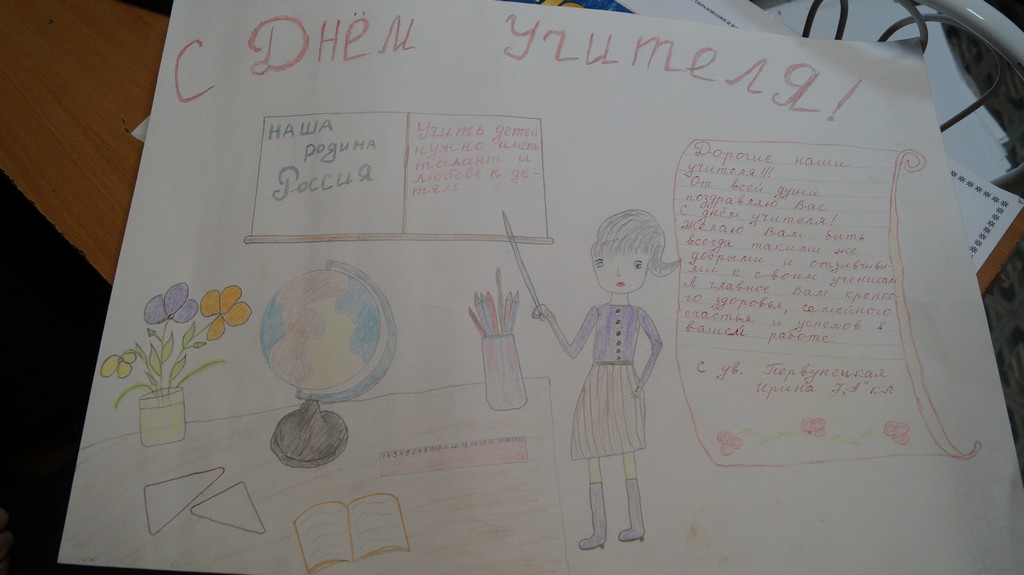 С ДНЁМ УЧИТЕЛЯ!
НАША
родина
Россия
Учить детей
нужно иметь
талант и
любовь к де-
тям
Дорогие наши
учителя!!!
От всей души
поздравляю Вас
С днём учителя!
Желаю Вам быть
всегда такими же
добрыми и отзывчивы-
ми к своим ученикам
А главное Вам крепко-
го здоровья, семейного
счастья и успехов в
вашей работе
С ув. Первунецкая
Ирина 7"А"кл